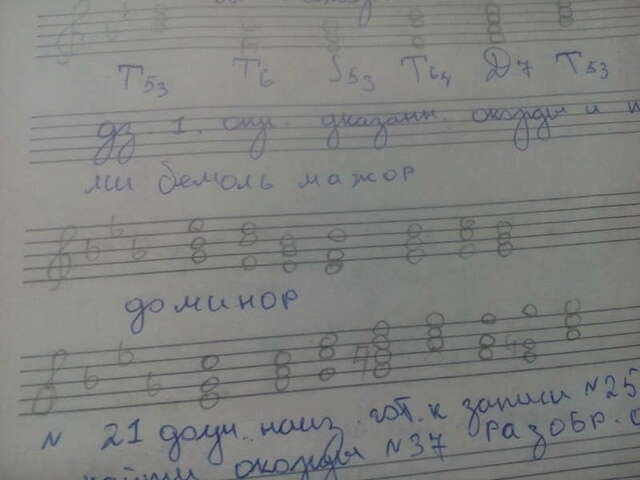 T53 T6 S53 T64 Д7 T53
дз 1. опр. указанн. аккорды и п
ми бемоль мажор
до минор
N 21 дом. наиз. гот. к записи №25
найти аккорды №37 разобр.